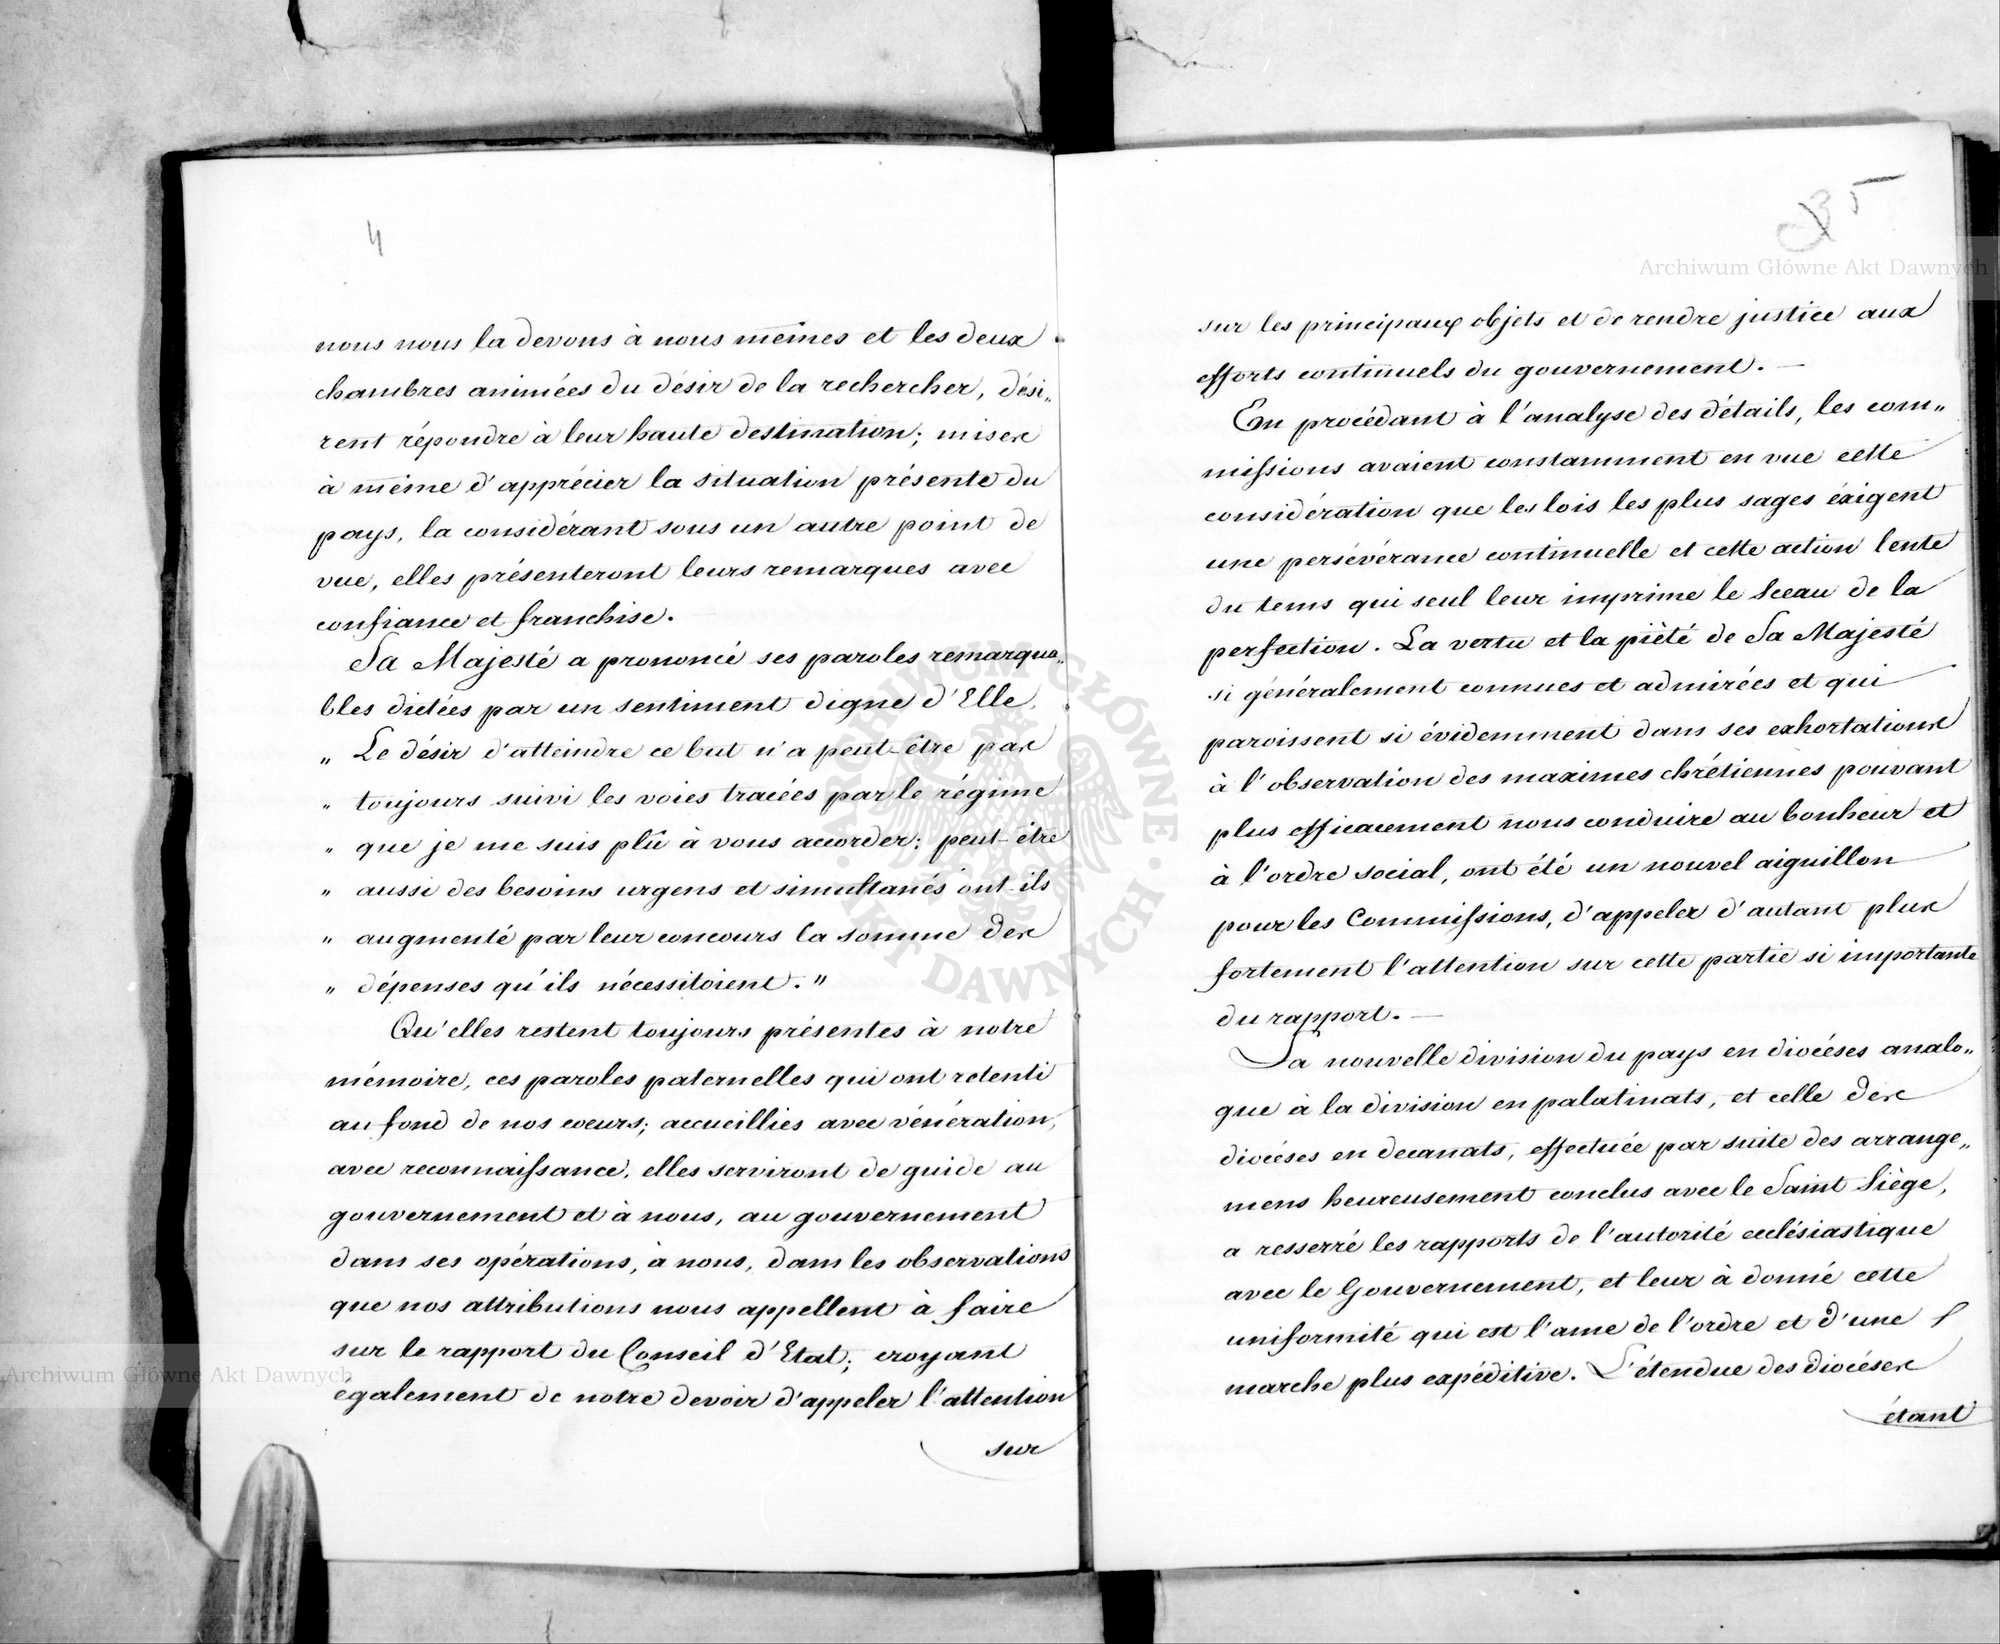 4
nous nous la devons à nous mêmes et les deux
chambres animées du désir de la rechercher, dési„
rent répondre à leur haute destination; mises
à même d'apprécier la situation présente du
pays, la considérant sous un autre point de
vue, elles présenteront leurs remarques avec
confiance et franchise.
Sa Majesté a prononcé ses paroles remarqua„
bles dictées par un sentiment digne d'Elle.
„ Le désir d'atteindre ce but n'a peut-être pas
„ toujours suivi les voies tracées par le régime
„ que je me suis plû à vous accorder; peut-être
„ aussi des besoins urgens et simultanés ont-ils
„ augmenté par leur concours la somme des
„ dépenses qu'ils nécessitoient."
Qu'elles restent toujours présentes à notre
mémoire, ces paroles paternelles qui ont retenti
au fond de nos coeurs; accueillies avec vénération,
avec reconnaissance, elles serviront de guide au
gouvernement et à nous, au gouvernement
dans ses opérations, à nous, dans les observations
que nos attributions nous appellent à faire
sur le rapport du Conseil d'Etat; croyant
également de notre devoir d'appeler l'attention
sur
35
sur les principaux objets et de rendre justice aux
efforts continuels du gouvernement. —
En procédant à l'analyse des détails, les com„
missions avaient constamment en vue cette
considération que les lois les plus sages éxigent
une persévérance continuelle et cette action lente
du tems qui seul leur imprime le sceau de la
perfection. La vertu et la piété de Sa Majesté
si généralement connues et admirées et qui
paroissent si évidemment dans ses exhortations
à l'observation des maximes chrétiennes pouvant
plus efficacement nous conduire au bonheur et
à l'ordre social, ont été un nouvel aiguillon
pour les Commissions, d'appeler d'autant plus
fortement l'attention sur cette partie si importante
du rapport. —
La nouvelle division du pays en diocéses analo„
gue à la division en palatinats, et celle des
diocéses en decanats, effectuée par suite des arrange„
mens heureusement conclus avec le Saint Siège,
a resserré les rapports de l'autorité ecclésiastique
avec le Gouvernement, et leur à donné cette
uniformité qui est l'ame de l'ordre et d'une
marche plus expéditive. L'étendue des diocéses
étant
Archiwum Główne Akt Dawnych
Archiwum Główne Akt Dawnych
ARCHIWUM GŁÓWNE AKT DAWNYCH